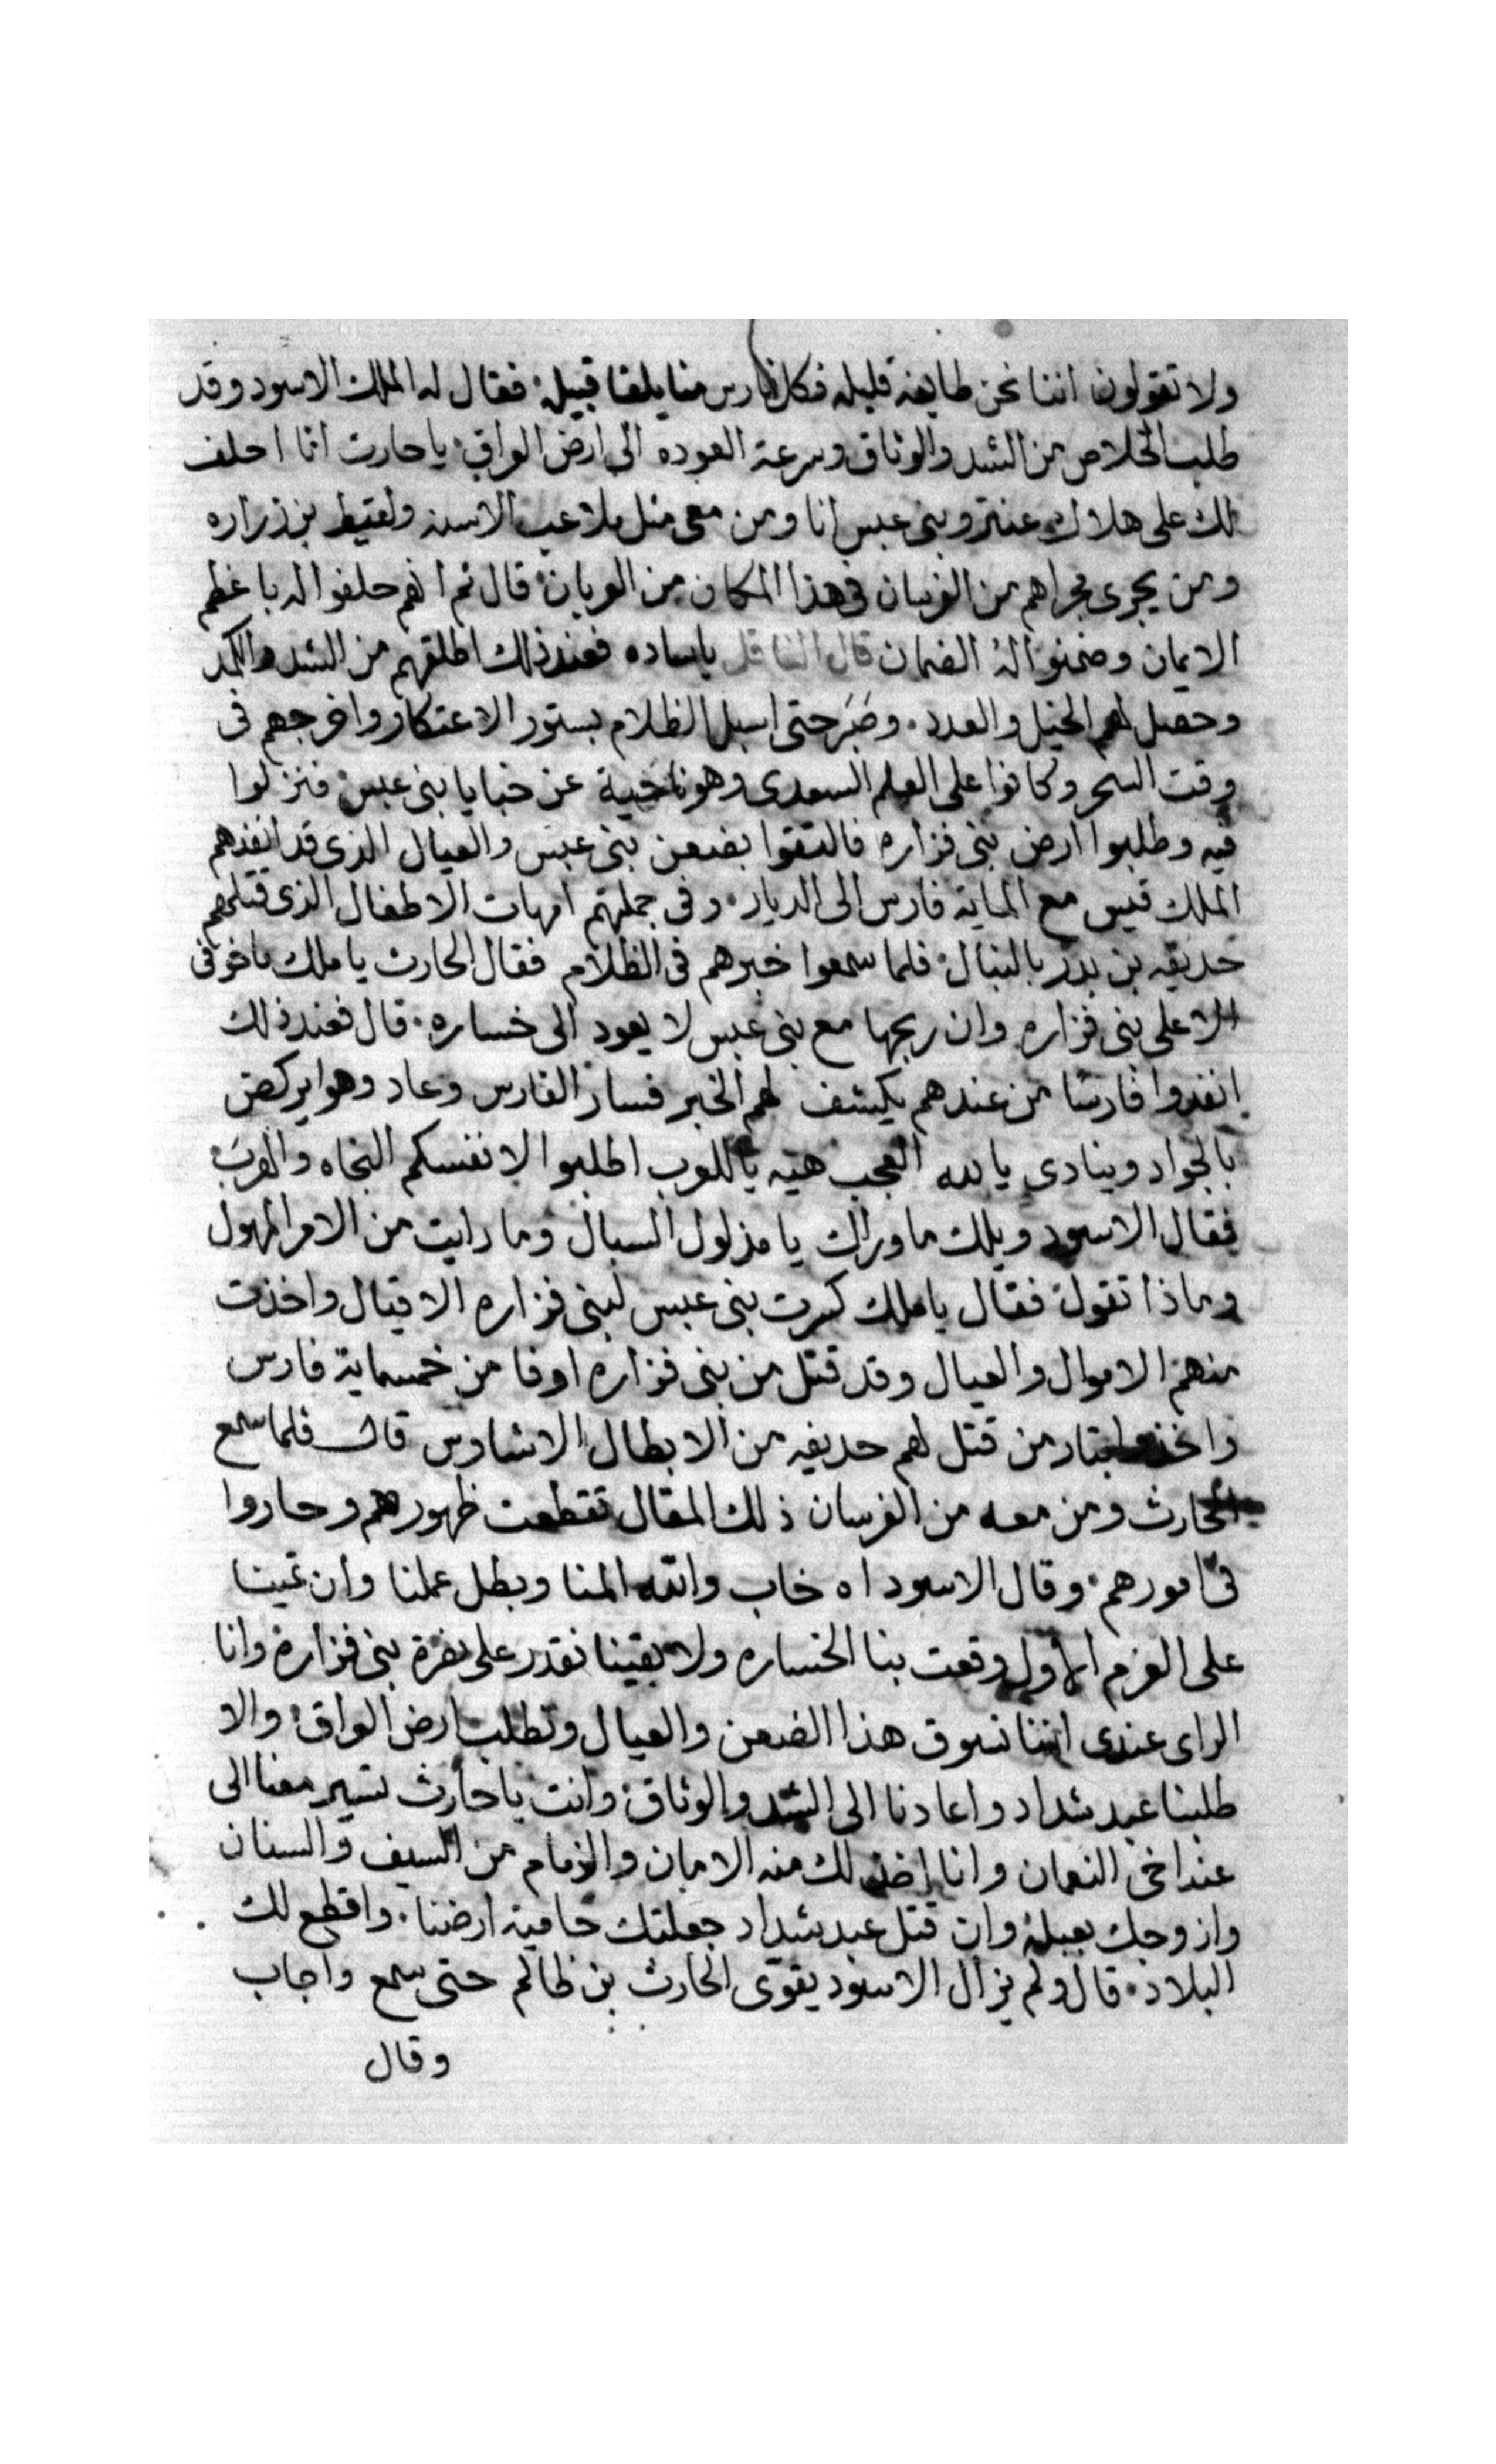 ولا تقولون اننا نحن طايفه قليله فكل فارس منا يلقا قبيله فقال له الملك الاسود وقد
طلب الخلاص من الشد والوثاق وسرعة العوده الى ارض العراق يا حارت انا احلف
لك على هلاك عنتر وبنى عبس انا ومن معى مثل ملاعب الاسنه ولقيط بن زراره
ومن يجرى مجراهم من الفرسان فى هذا المكان من العربان قال ثم انهم حلفوا له باعظم
الايمان وضمنوا له الضمان قال الناقل ياساده فعند ذلك اطلقهم من الشد والكمد
وحصل لهم الخيل والعدد وصبر حتى اسبل الظلام بستور الاعتكار واخرجهم فى
وقت السحر وكانوا على العلم السعدى وهو ناحية عن خبايا بنى عبس فنزلوا
فيه وطلبوا ارض بنى فزاره فالتقوا بضعن بنى عبس والعيال الذى قد انفذهم
الملك قيس مع الماية فارس الى الديار وفى جملتهم امهات الاطفال الذى قتلهم
حديفه بن بدر بالنبال فلما سمعوا خبرهم فى الظلام فقال الحارث يا ملك ماخوفى
الا على بنى فزاره وان ربحها مع بنى عبس لا يعود الى خساره قال فعند ذلك
انفدوا فارسا من عندهم يكشف لهم الخبر فسار الفارس وعاد وهوا يركض
بالجواد وينادى يا لله العجب هيه ياللعرب اطلبوا لانفسكم النجاه والهرب
فقال الاسود ويلك ماوراك يا مذلول السبال وما رايت من الامر المهول
وماذا تقول فقال يا ملك كسرت بنى عبس لبنى فزاره الاقيال واخذت
منهم الاموال والعيال وقد قتل من بنى فزاره اوفا من خمسماية فارس
واخذوا بتار من قتل لهم حديفه من الابطال الاشاوس قال فلما سمع
الحارث ومن معه من الفرسان ذلك المقال تقطعت ظهورهم وحاروا
فى امورهم وقال الاسود اه خاب والله المنا وبطل عملنا وان تمينا
على العزم الاول وقعت بنا الخساره ولا بقينا نقدر على نصرة بنى فزاره وانا
الراى عندى اننا نسوق هذا الضعن والعيال ونطلب ارض العراق والا
طلبنا عبد شداد واعادنا الى الشد والوثاق وانت يا حارث تسير معنا الى
عند اخى النعمان وانا اخذ لك منه الامان والزمام من السيف والسنان
وازوجك بعبله وان قتل عبد شداد جعلتك حامية ارضنا واقطع لك
البلاد قال ولم يزال الاسود يقوى الحارث بن ظالم حتى سمع واجاب
وقال